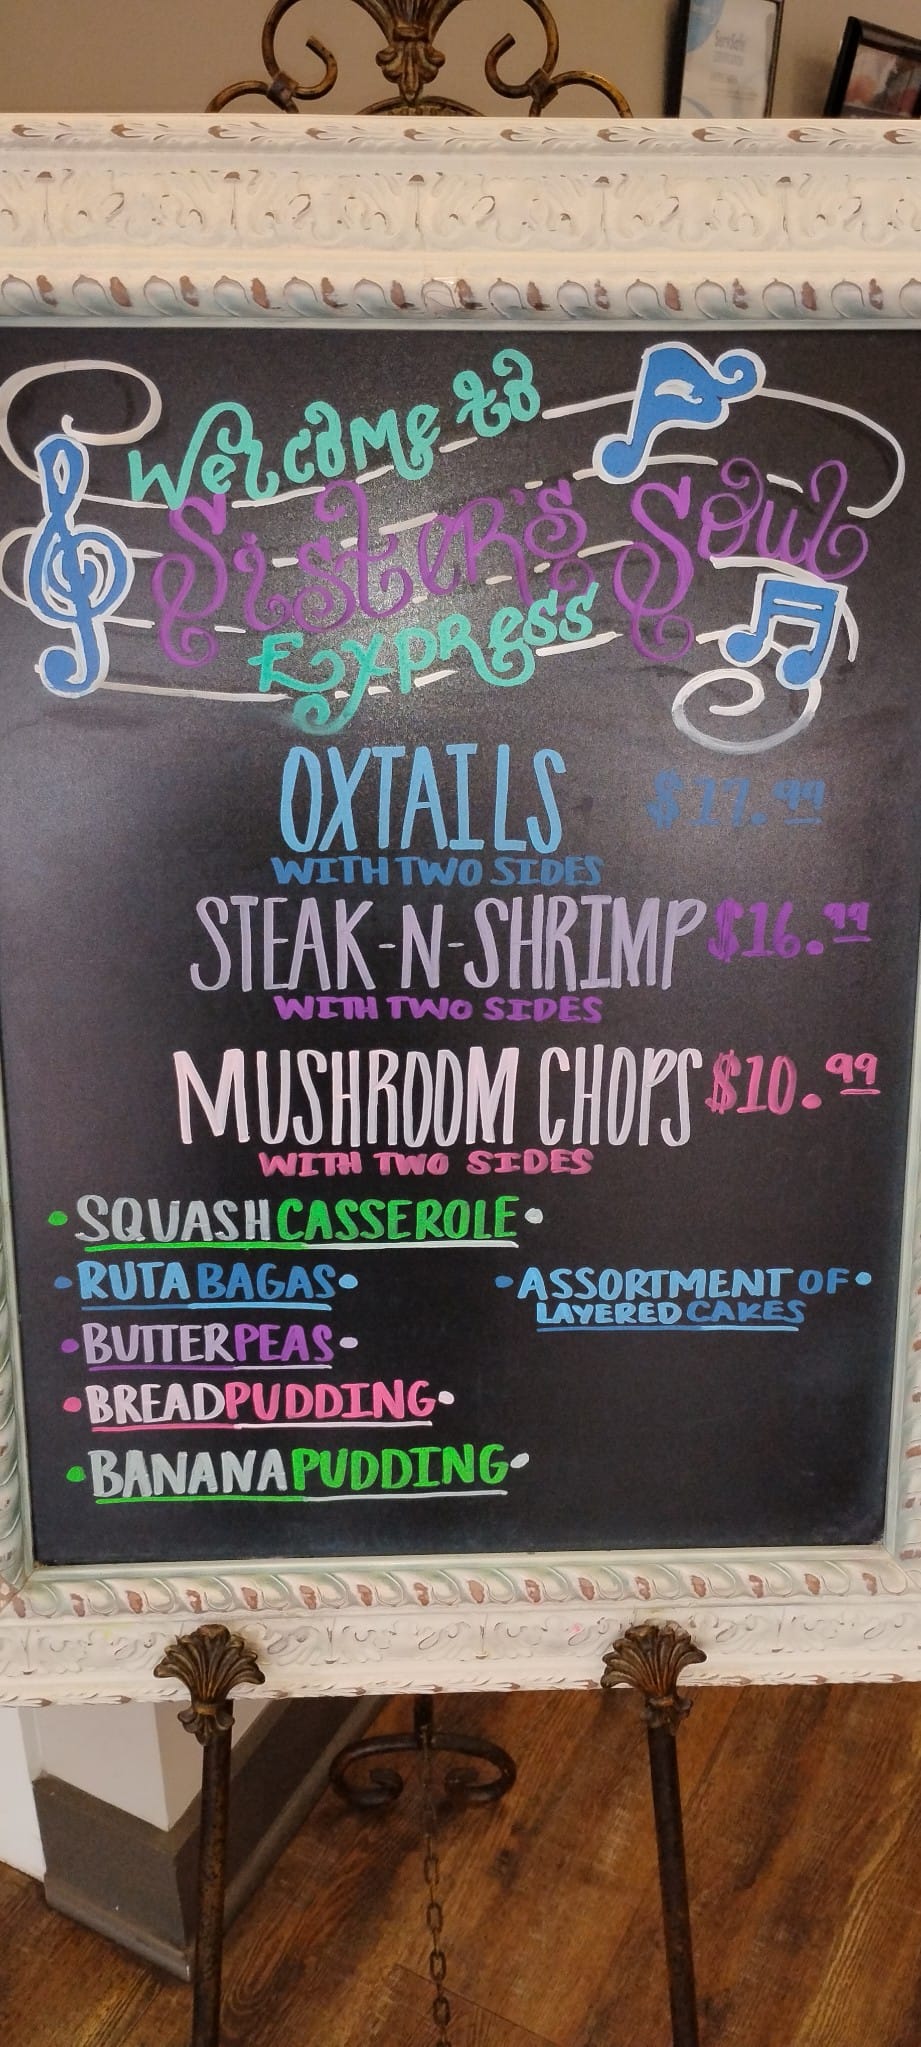 ServSafe
Welcome to
Sister's Soul
Express
OXTAILS $17.99
WITH TWO SIDES
STEAK-N-SHRIMP $16.99
WITH TWO SIDES
MUSHROOM CHOPS $10.99
WITH TWO SIDES
• SQUASH CASSEROLE •
• RUTABAGAS •
• ASSORTMENT OF •
LAYERED CAKES
• BUTTER PEAS •
• BREAD PUDDING •
• BANANA PUDDING •